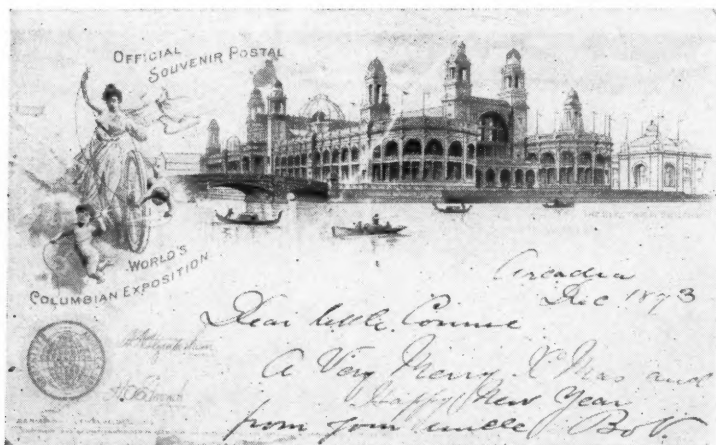 OFFICIAL
SOUVENIR POSTAL
WORLD'S
COLUMBIAN EXPOSITION
Arcadia
Dec 1893
Dear little Connie
A Very Merry X Mas and
Happy New Year
from your uncle Bob.